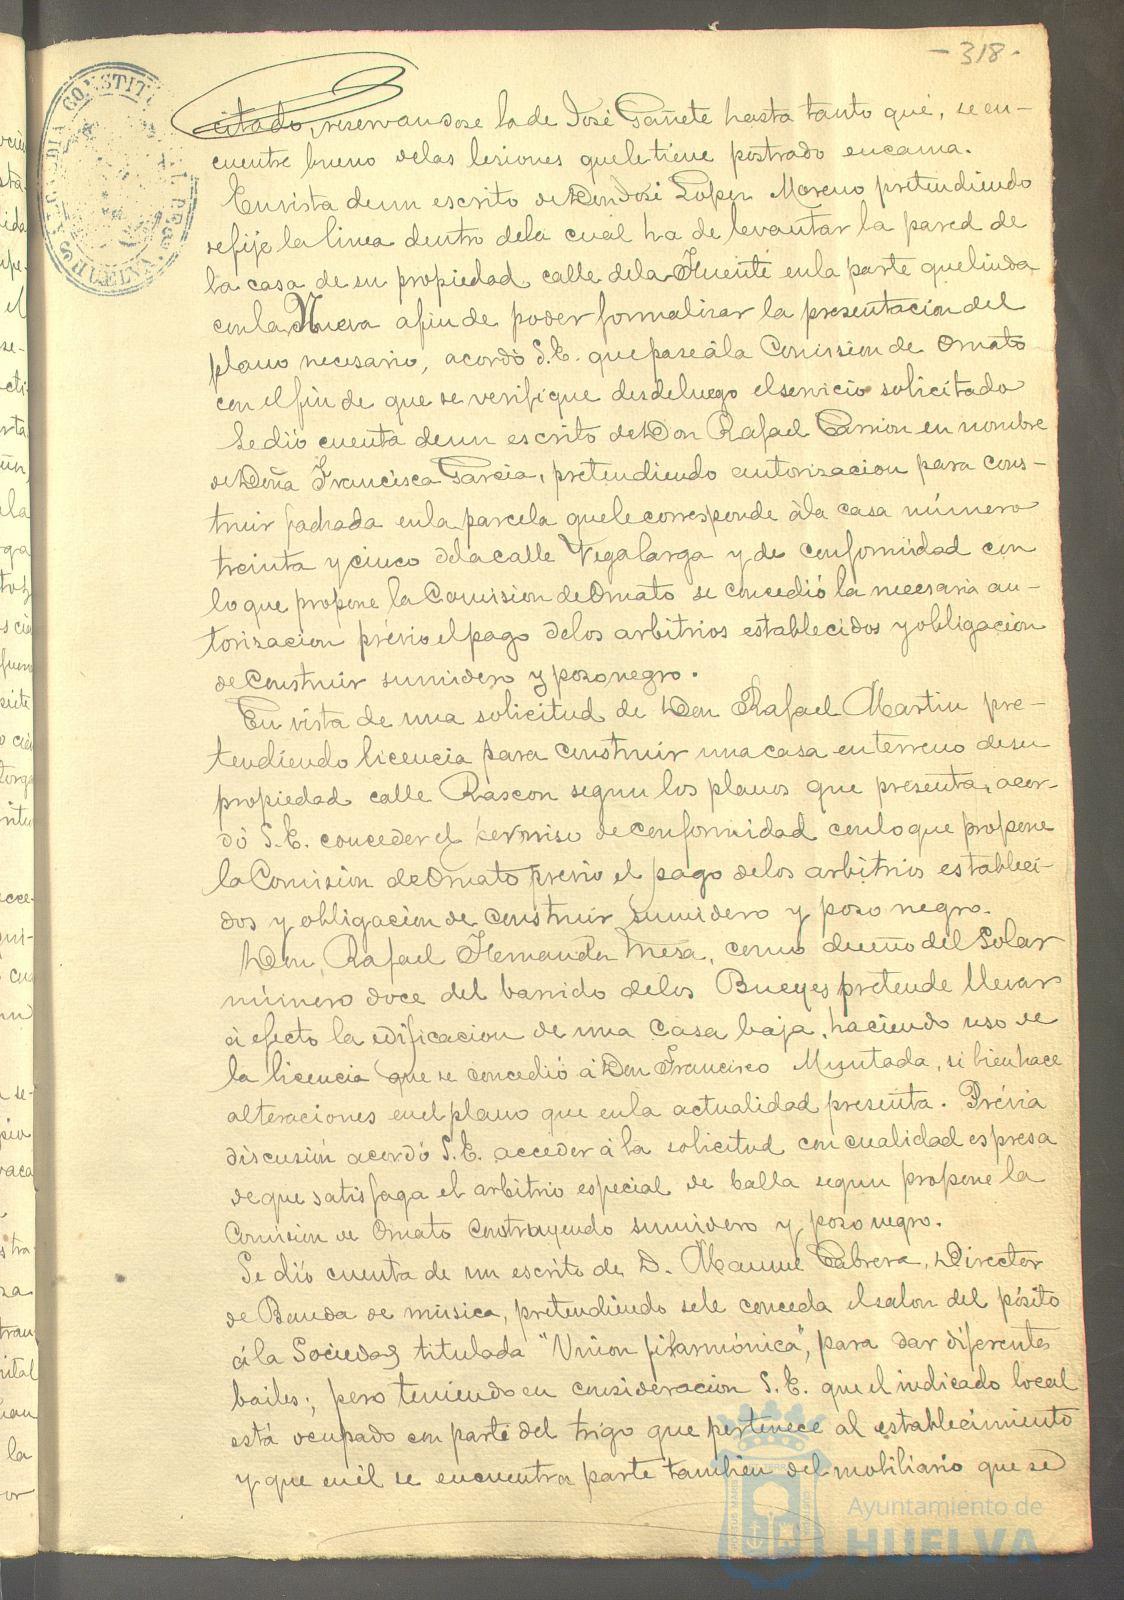 - 318 -
citado, reservandose la de José Gañete hasta tanto que, se en-
cuentre bueno delas lesiones quele tiene postrado encama.
En vista deun escrito de Don José Lopez Moreno pretendiendo
se fije la linea dentro dela cual ha de levantar la pared de
la casa de su propiedad calle dela Fuente enla parte quelinda
conla Nueva afin de poder formalizar la presentacion del
plano necesario, acordó S.E. que pase á la Comision de Ornato
con el fin de que se verifique desdeluego elservicio solicitado
Se dió cuenta deun escrito de Don Rafael Carrion en nombre
de Doña Francisca Garcia, pretendiendo autorizacion para cons-
truir fachada enla parcela quele corresponde á la casa número
treinta y cinco dela calle Vegalarga y de conformidad con
lo que propone la Comision de Ornato se concedió la necesaria au-
torizacion prévio el pago delos arbitrios establecidos y obligacion
de construir sumidero y pozo negro.
En vista de una solicitud de Don Rafael Martin pre-
tendiendo licencia para construir una casa en terreno desu
propiedad calle Rascon segun los planos que presenta, acor-
dó S.E. conceder el permiso de conformidad conlo que propone
la Comision de Ornato previo el pago delos arbitrios estableci-
dos y obligacion de construir sumidero y pozo negro.
Don Rafael Hernandez Mesa, como dueño del Solar
número doce del barrido delos Bueyes pretende llevar
á efecto la edificacion de una casa baja, haciendo uso de
la licencia que se concedió á Don Francisco Muntada, si bien hace
alteraciones enel plano que enla actualidad presenta. Prévia
discusión acordó S.E. acceder á la solicitud con cualidad espresa
de que satisfaga el arbitrio especial de balla segun propone la
Comision de Ornato construyendo sumidero y pozo negro.
Se dió cuenta de un escrito de D. Manuel Cabrera, Director
de Banda de música, pretendiendo sele conceda el salon del pósito
á la Sociedad titulada "Union filarmónica", para dar diferentes
bailes; pero teniendo en consideracion S.E. que el indicado local
está ocupado con parte del trigo que pertenece al establecimiento
y que en él se encuentra parte tambien del mobiliario que se
Ayuntamiento de
HUELVA